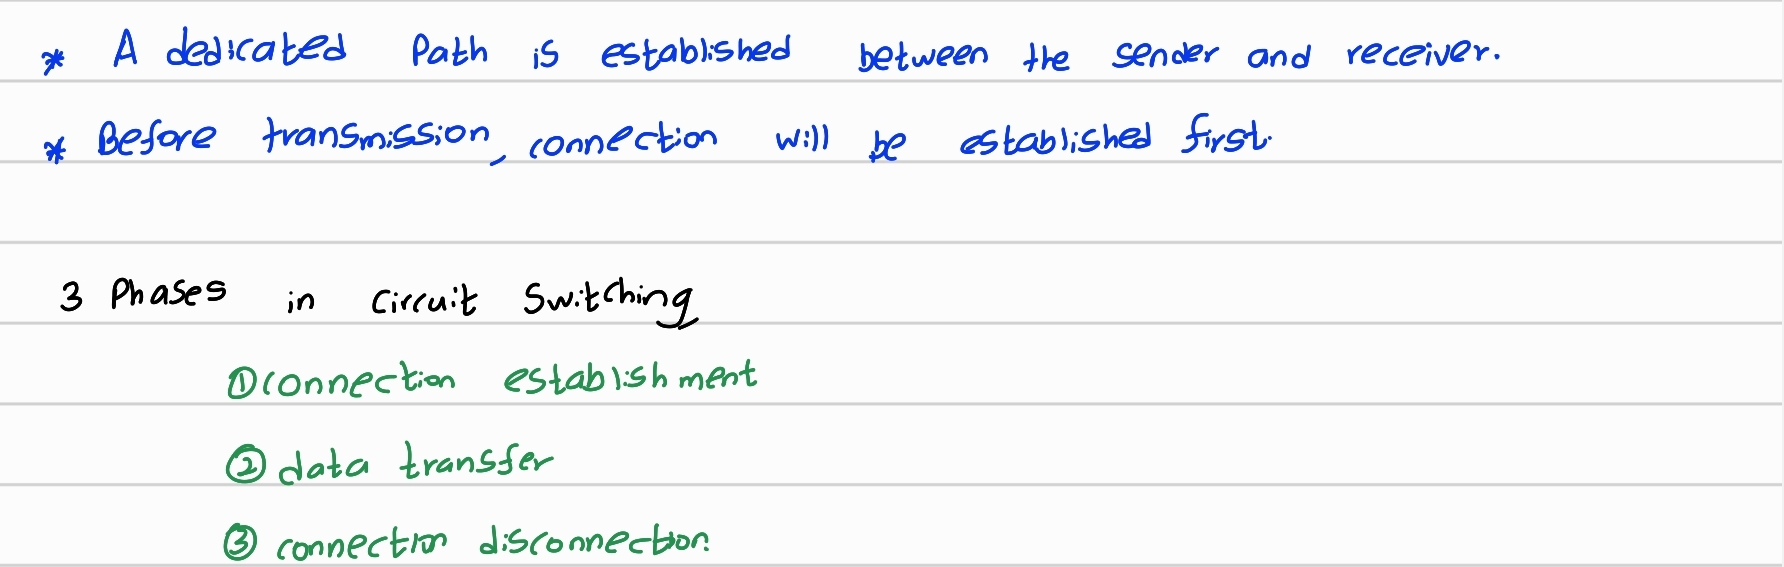 * A dedicated Path is established between the sender and receiver.
* Before transmission, connection will be established first.
3 Phases in Circuit Switching
① connection establishment
② data transfer
③ connection disconnection